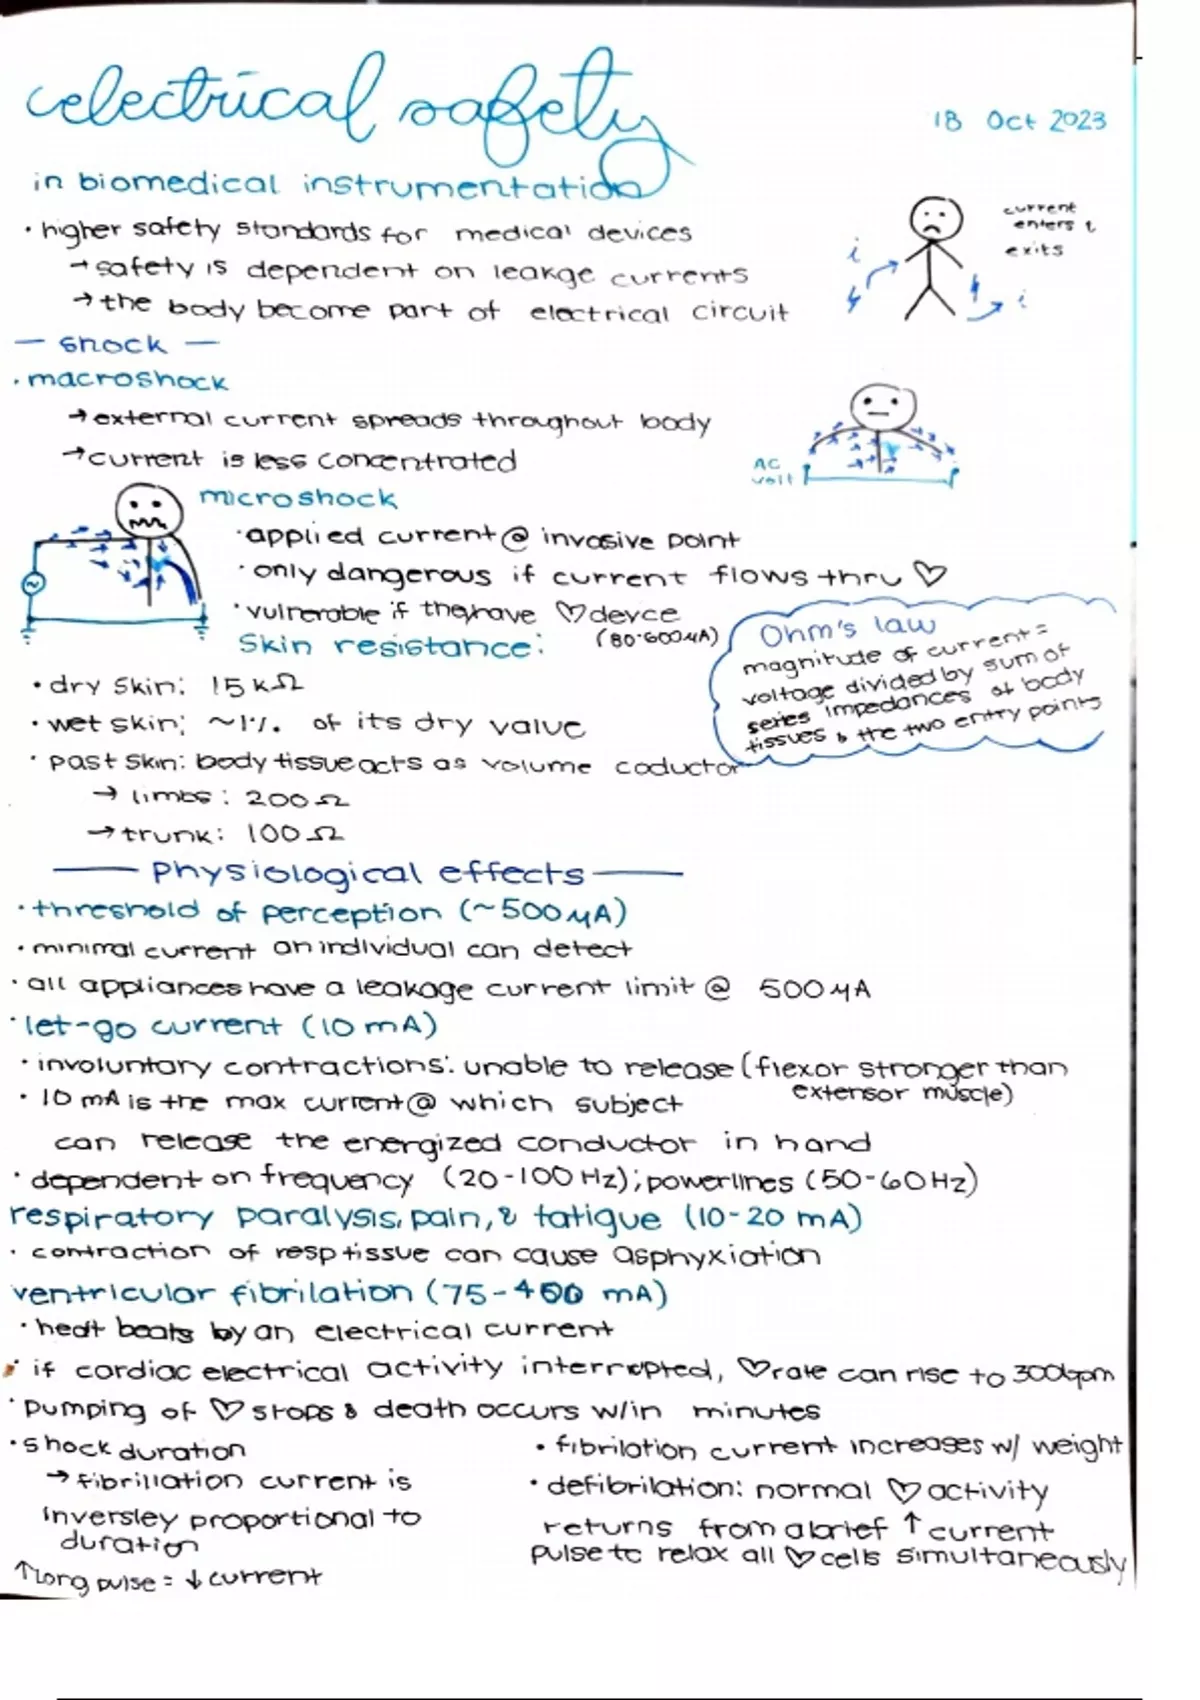 electrical safety
18 Oct 2023
in biomedical instrumentation
• higher safety standards for medical devices
→ safety is dependent on leakge currents
→ the body become part of electrical circuit
current
enters &
exits
i
i
— shock —
• macroshock
→ external current spreads throughout body
→ current is less concentrated
AC
volt
microshock
• applied current @ invasive point
• only dangerous if current flows thru ♡
• vulnerable if they have ♡ devce
(80-600µA)
Skin resistance:
• dry skin: 15 kΩ
• wet skin: ~1% of its dry value
• past skin: body tissue acts as volume coductor
→ limbs: 200 Ω
→ trunk: 100 Ω
Ohm's law
magnitude of current =
voltage divided by sum of
series impedances of body
tissues & the two entry points
— Physiological effects —
• threshold of perception (~500 µA)
• minimal current an individual can detect
• all appliances have a leakage current limit @ 500 µA
• let-go current (10 mA)
• involuntary contractions: unable to release (flexor stronger than
extensor muscle)
• 10 mA is the max current @ which subject
can release the energized conductor in hand
• dependent on frequency (20-100 Hz); powerlines (50-60 Hz)
respiratory paralysis, pain, & fatigue (10-20 mA)
• contraction of resp tissue can cause asphyxiation
ventricular fibrilation (75-400 mA)
• heat beats by an electrical current
• if cardiac electrical activity interrupted, ♡ rate can rise to 300bpm
• pumping of ♡ stops & death occurs w/in minutes
• shock duration
→ fibrillation current is
inversley proportional to
duration
↑ long pulse = ↓ current
• fibrilation current increases w/ weight
• defibrilation: normal ♡ activity
returns from a brief ↑ current
pulse to relax all ♡ cells simultaneously